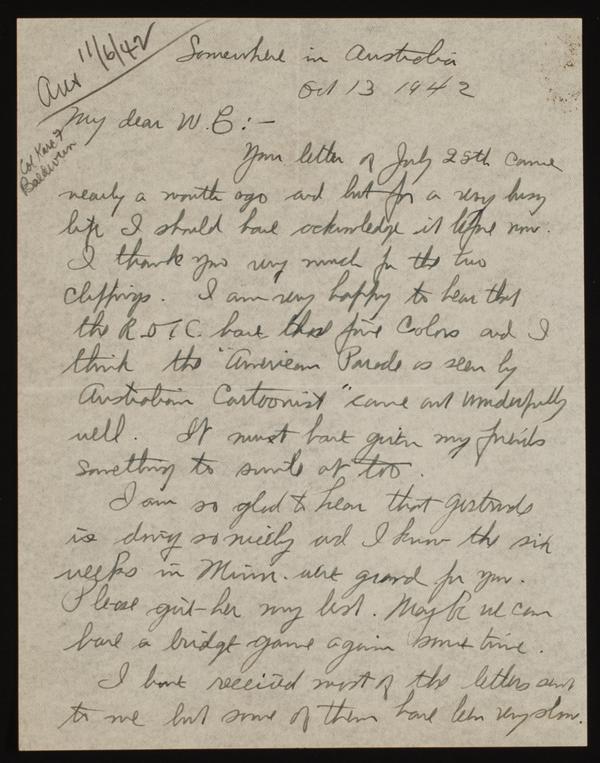 Ans 11/6/42
Somewhere in Australia
Oct 13 1942
My dear W.B:-
Col Karl F
Baldwin
Your letter of July 28th came
nearly a month ago and but for a very busy
life I should have acknowledge it before now.
I thank you very much for the two
clippings. I am very happy to hear that
the R.O.T.C. have those fine Colors and I
think the "American Parade as seen by
Australian Cartoonist" came out wonderfully
well. It must have given my friends
something to smile at too.
I am so glad to hear that Gertrude
is doing so nicely and I know the six
weeks in Minn. were grand for you.
Please give her my best. Maybe we can
have a bridge game again some time.
I have received most of the letters sent
to me but some of them have been very slow.